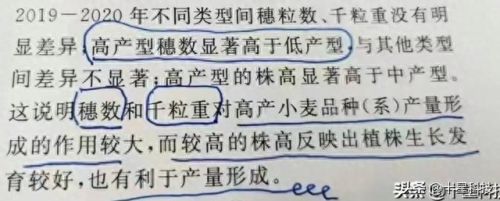 2019-2020年不同类型间穗粒数、千粒重没有明
显差异,高产型穗数显著高于低产型,与其他类型
间差异不显著;高产型的株高显著高于中产型。
这说明穗数和千粒重对高产小麦品种(系)产量形
成的作用较大,而较高的株高反映出植株生长发
育较好,也有利于产量形成。
头条 @十星科技